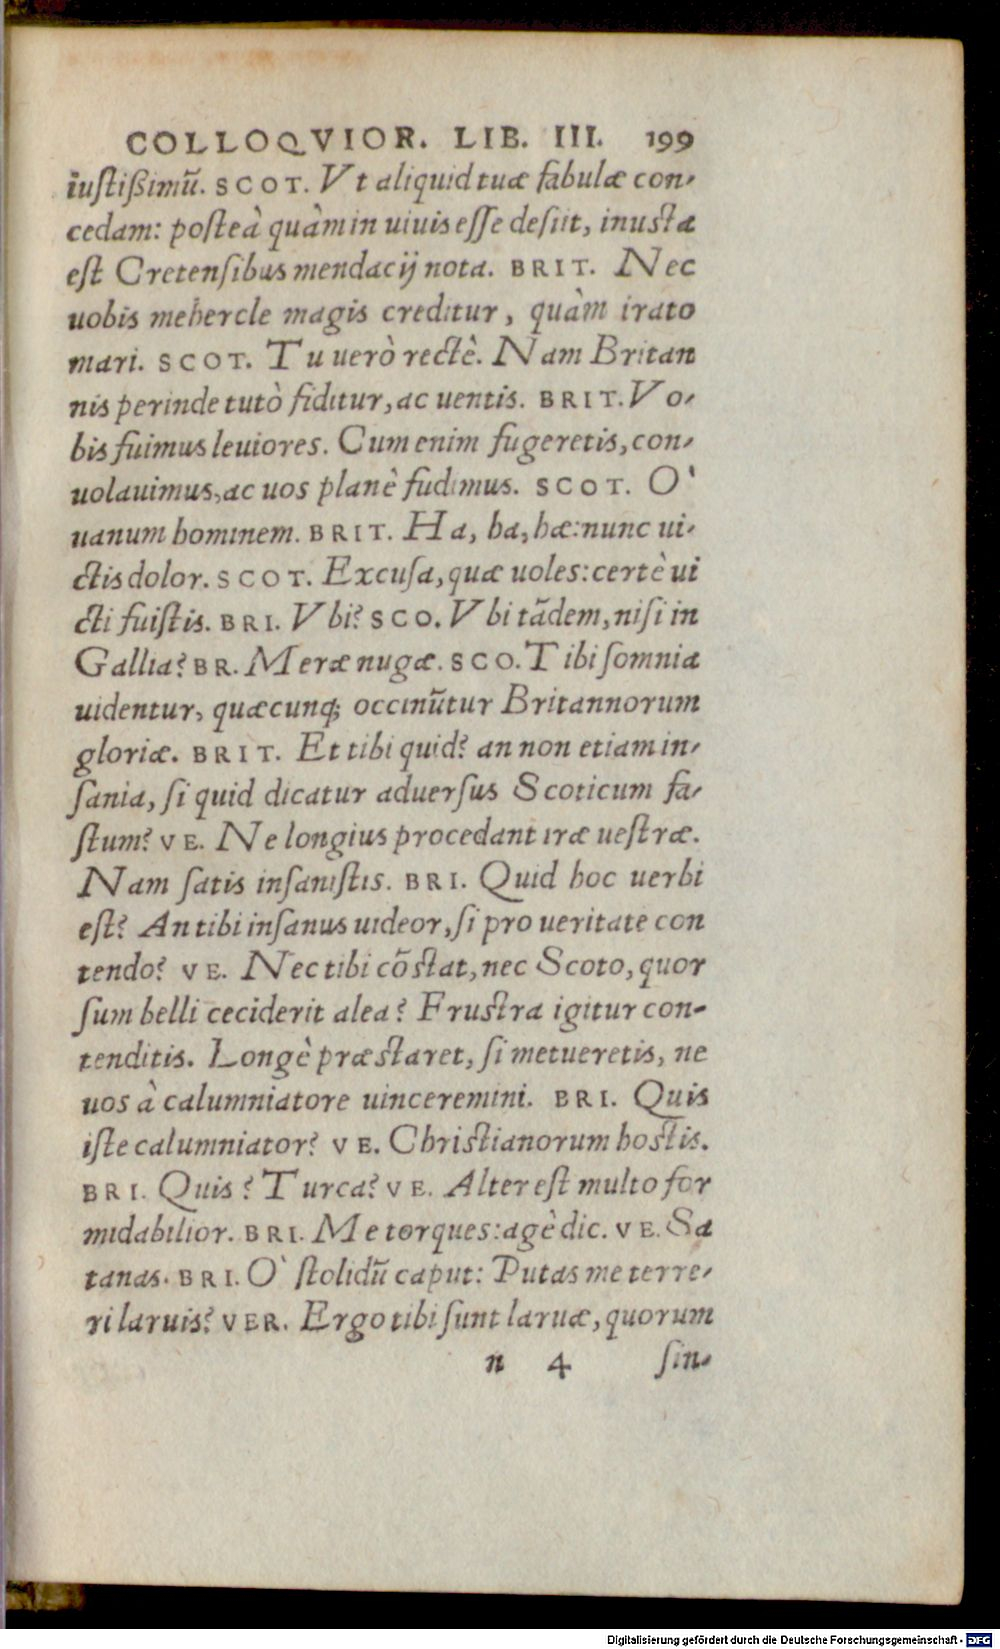 COLLOQVIOR. LIB. III. 199
iustißimũ. SCOT. Vt aliquid tuæ fabulæ con-
cedam: posteà quàm in uiuis esse desiit, inusta
est Cretensibus mendacij nota. BRIT. Nec
uobis mehercle magis creditur, quàm irato
mari. SCOT. Tu uerò rectè. Nam Britan
nis perinde tutò fiditur, ac uentis. BRIT. Vo-
bis fuimus leuiores. Cum enim fugeretis, con-
uolauimus, ac uos planè fudimus. SCOT. O`
uanum hominem. BRIT. Ha, ha, hæ: nunc ui-
ctis dolor. SCOT. Excusa, quæ uoles: certè ui
cti fuistis. BRI. Vbi? SCO. Vbi tãdem, nisi in
Gallia? BR. Meræ nugæ. SCO. Tibi somnia
uidentur, quæcunq; occinũtur Britannorum
gloriæ. BRIT. Et tibi quid? an non etiam in-
sania, si quid dicatur aduersus Scoticum fa-
stum? VE. Ne longius procedant iræ uestræ.
Nam satis insanistis. BRI. Quid hoc uerbi
est? An tibi insanus uideor, si pro ueritate con
tendo? VE. Nec tibi cõstat, nec Scoto, quor
sum belli ceciderit alea? Frustra igitur con-
tenditis. Longè præstaret, si metueretis, ne
uos à calumniatore uinceremini. BRI. Quis
iste calumniator? VE. Christianorum hostis.
BRI. Quis? Turca? VE. Alter est multo for
midabilior. BRI. Me torques: agè dic. VE. Sa
tanas. BRI. O` stolidũ caput: Putas me terre-
ri laruis? VER. Ergo tibi sunt laruæ, quorum
n 4 sin-
Digitalisierung gefördert durch die Deutsche Forschungsgemeinschaft - DFG